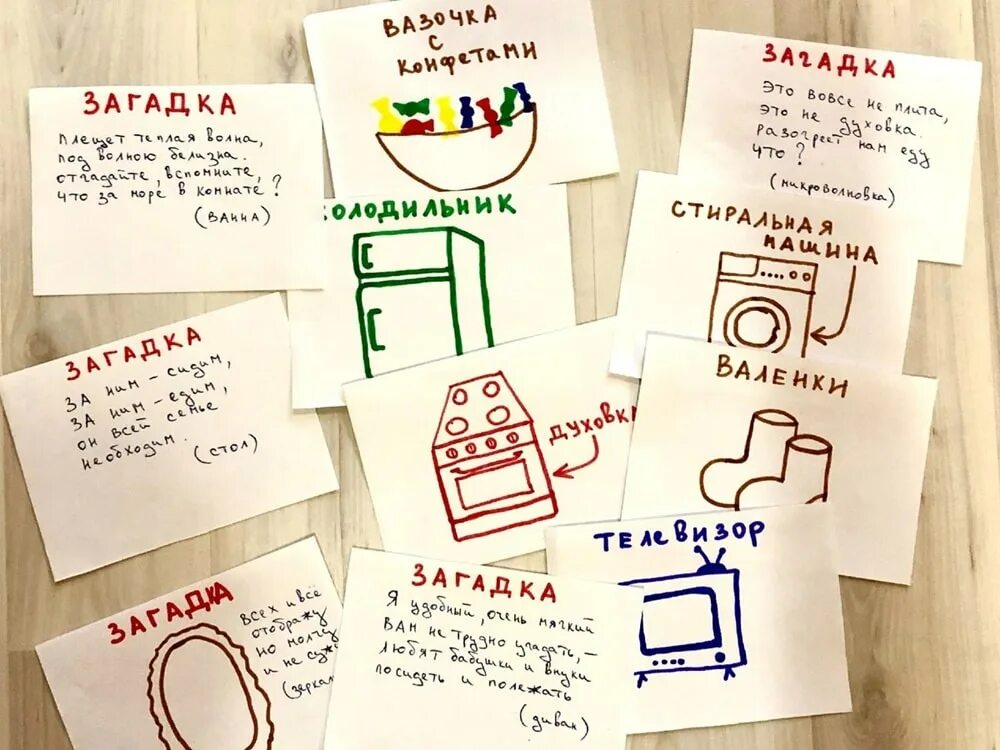 ВАЗОЧКА
С
КОНФЕТАМИ
ЗАГАДКА
Плещет теплая волна,
под волною белизна.
отгадайте, вспомните,
что за море в комнате?
(ВАННА)
ЗАГАДКА
Это вовсе не плита,
это не духовка.
разогреет нам еду
что?
(микроволновка)
ХОЛОДИЛЬНИК
СТИРАЛЬНАЯ
МАШИНА
ЗАГАДКА
ЗА ним - сидим,
ЗА ним - едим,
он всей семье
необходим.
(стол)
ДУХОВКА
ВАЛЕНКИ
ТЕЛЕВИЗОР
ЗАГАДКА
Всех и всё
отображу
но молчу
и не
(зеркал
ЗАГАДКА
Я удобный, очень мягкий
ВАМ не трудно угадать, -
любят бабушки и внуки
посидеть и полежать
(диван)